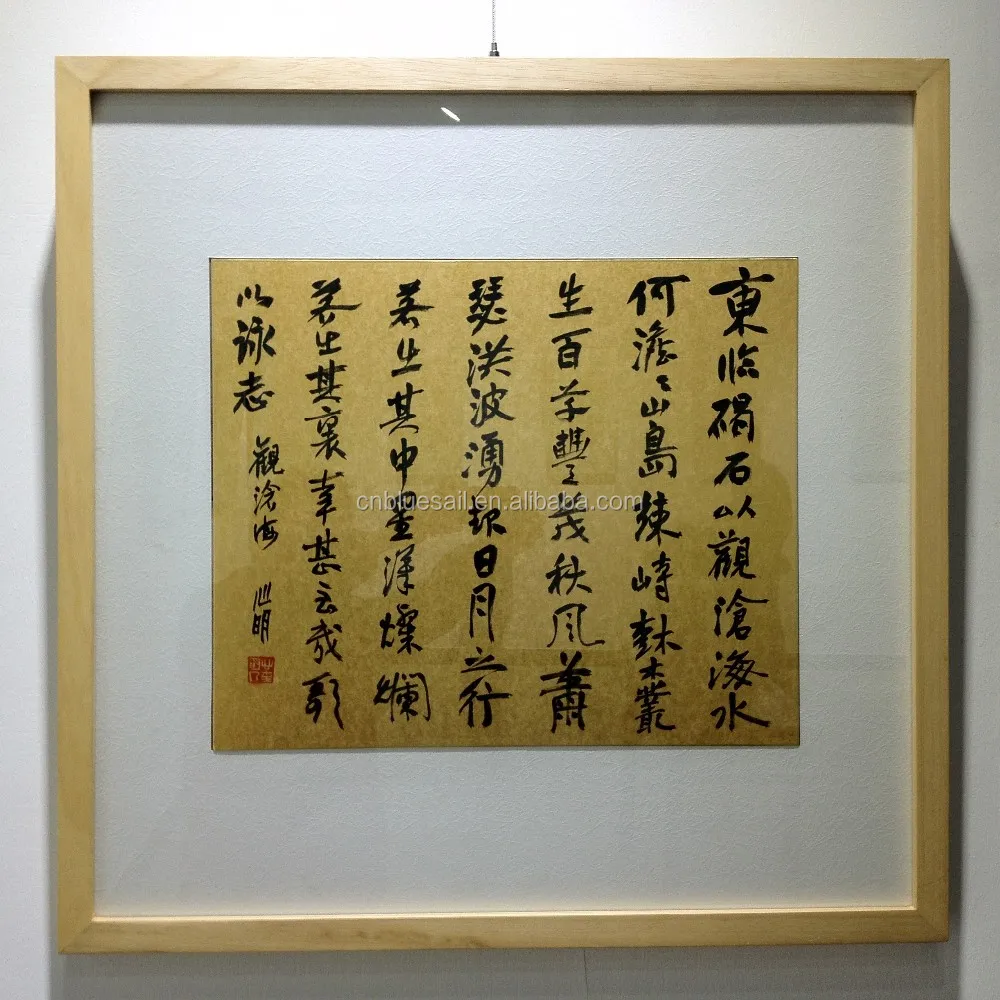 東临碣石以觀滄海水
何澹〻山島竦峙樹木叢
生百草豐〻茂秋風蕭
瑟洪波湧起日月之行
若出其中星漢燦爛
若出其裏幸甚至哉歌
以詠志
觀滄海
cnbluesail.en.alibaba.com